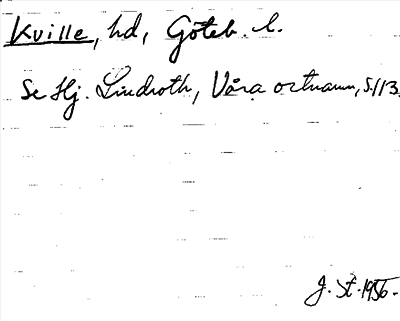 Kville, hd, Göteb. l.
Se Hj. Lindroth, Våra ortnamn, s. 113.
J. St. 1956.